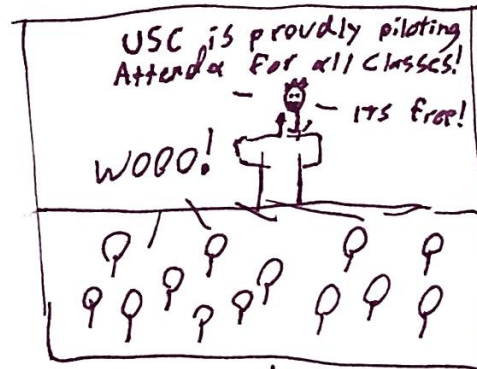 USC is proudly piloting
Attenda for all classes!
ITS free!
WOOO!